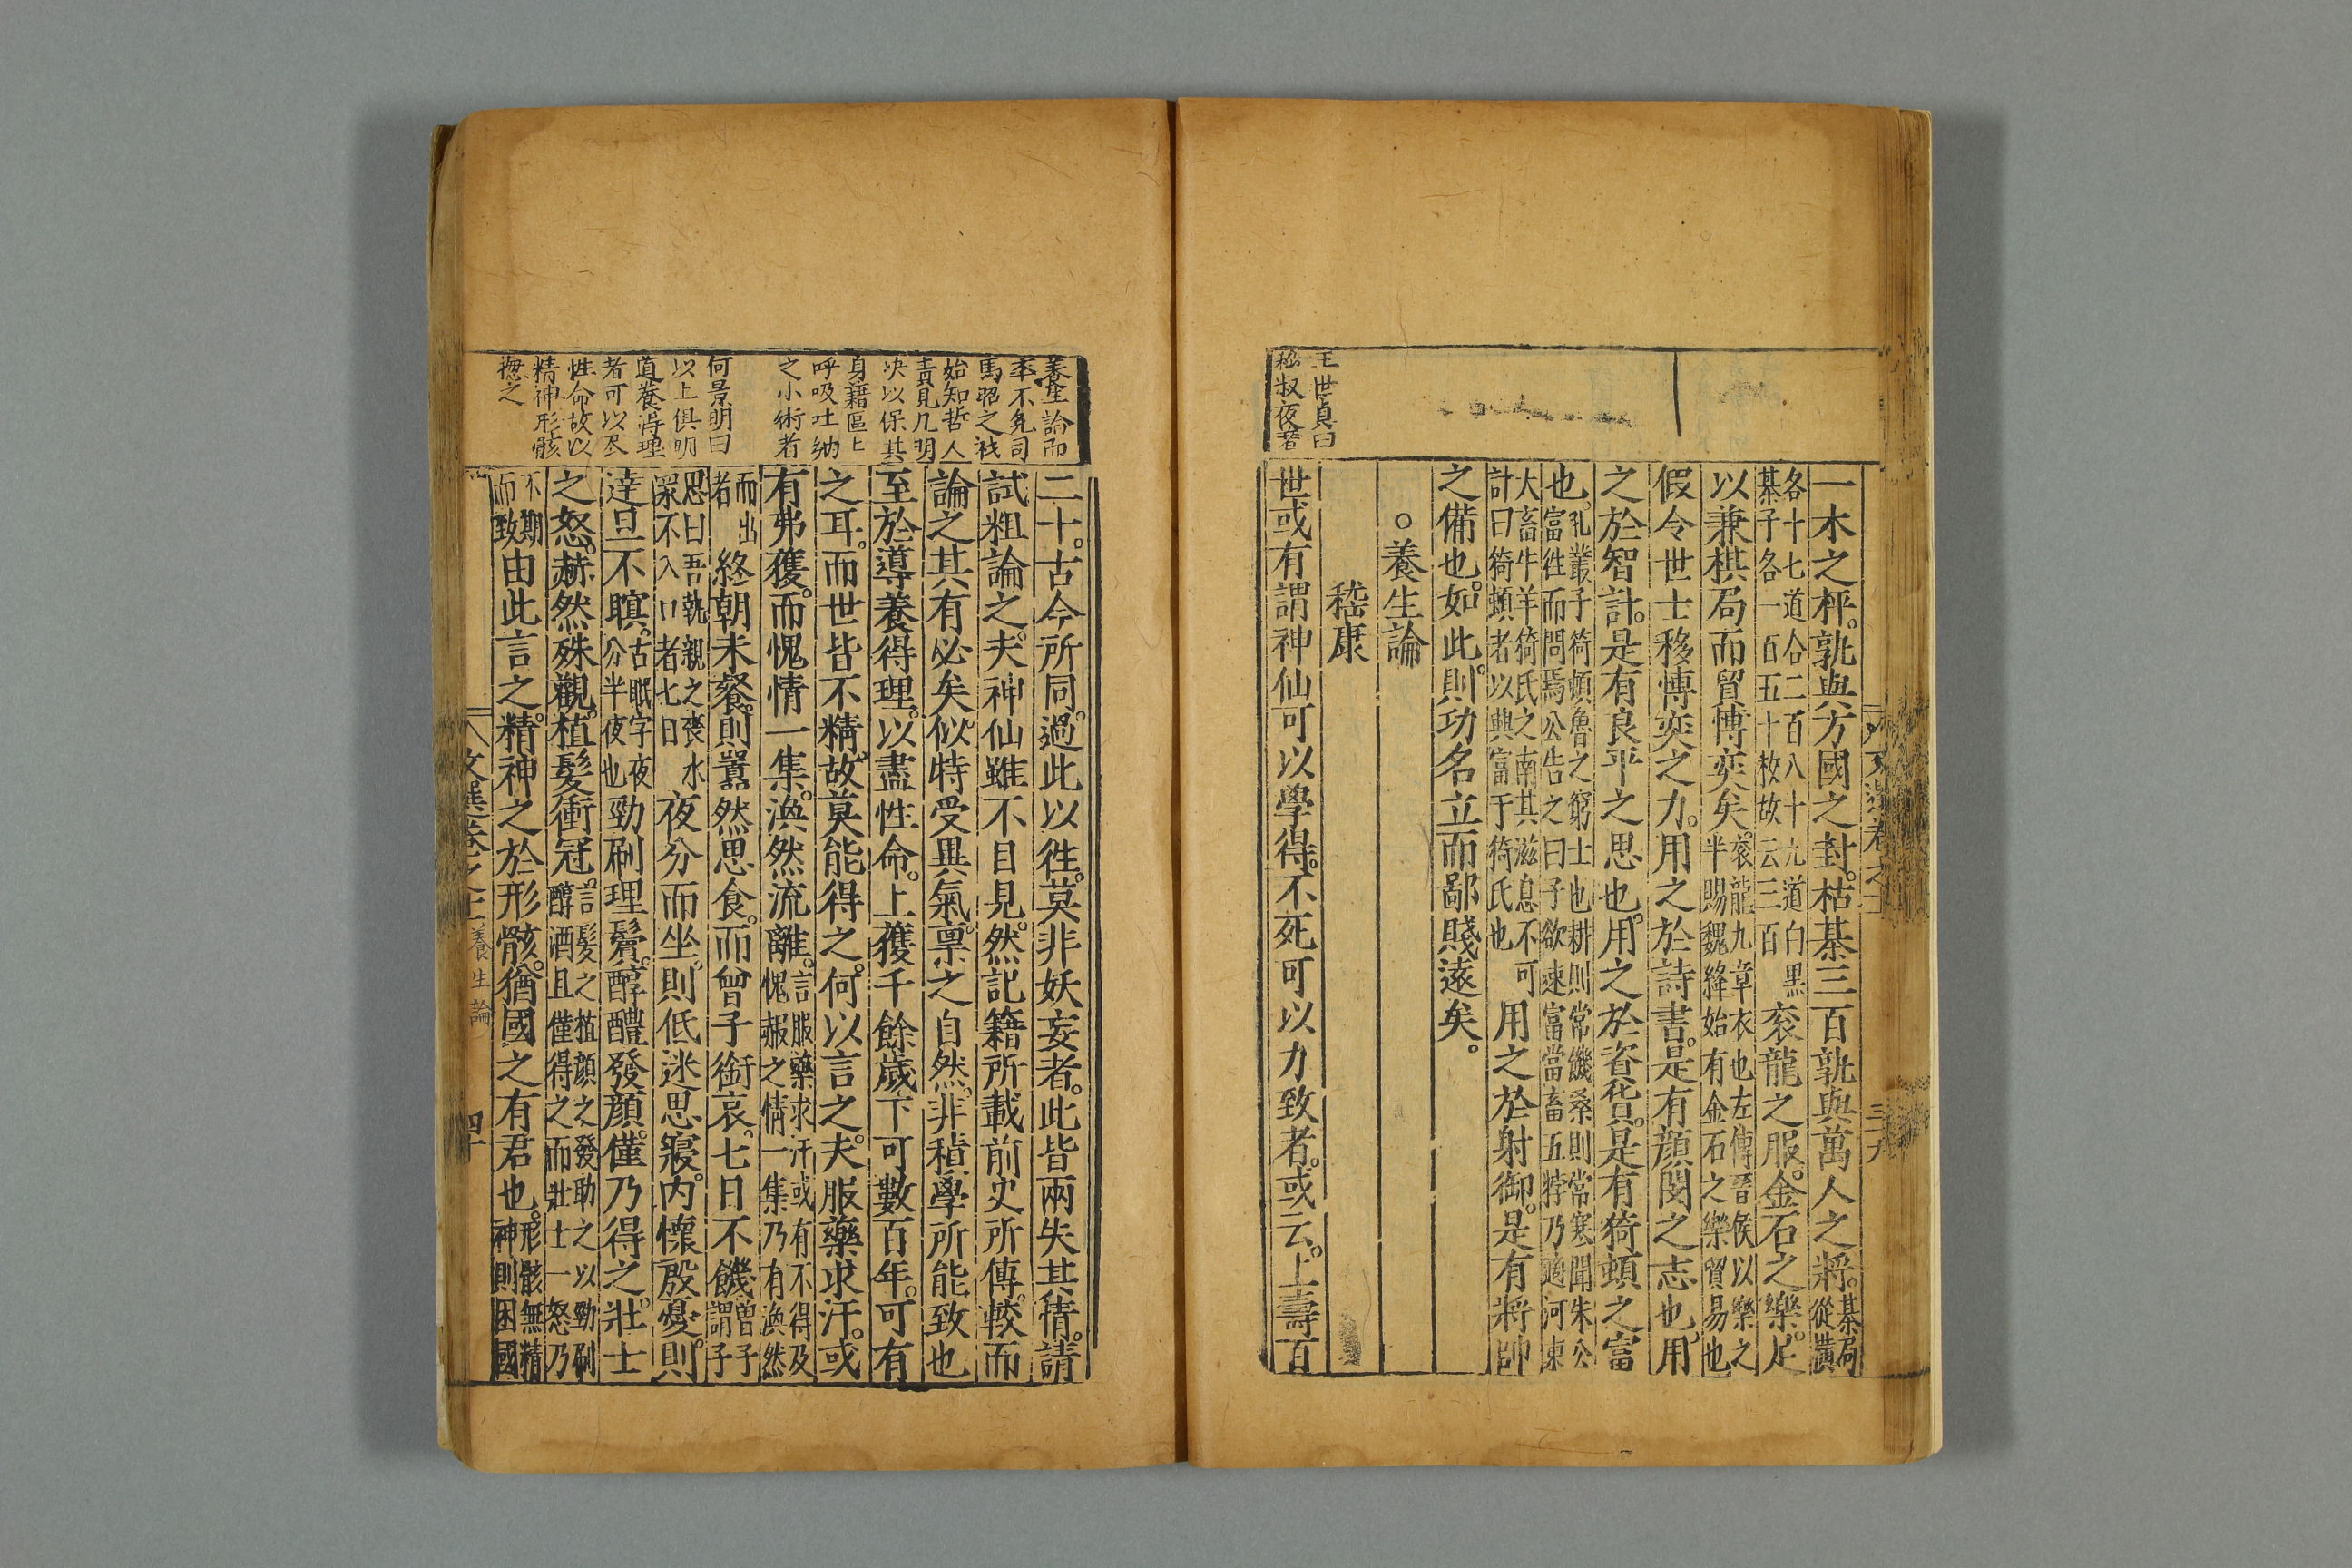 一木之枰。孰與方國之封。枯棊三百孰與萬人之將。棊局從橫
各十七道合二百八十九道白黑棊子各一百五十枚故云三百 袞龍之服。金石之樂。足
以兼棋局而貿博奕矣。袞龍九章衣也左傳晉侯以樂之半賜魏絳始有金石之樂貿易也
假令世士移博奕之力。用之於詩書。是有顔閔之志也。用
之於智計。是有良平之思也。用之於資貨。是有猗頓之富
也。孔叢子猗頓魯之窮士也耕則常饑桑則常寒聞朱公富徃而問焉公告之曰子欲速富當畜五牸乃適河東
大畜牛羊猗氏之南其滋息不可計曰猗頓者以興富于猗氏也 用之於射御。是有將帥
之備也。如此。則功名立而鄙賤遠矣。
。養生論
嵇康
世或有謂神仙可以學得。不死可以力致者。或云。上壽百
王世貞曰
嵇叔夜著
文選卷之十
三十九
養生論而
卒不免司
馬昭之戕
始知哲人
責見几明
决以保其
身藉區區
呼吸吐納
之小術者
何景明曰
以上俱明
道養得理
者可以尽
性命故以
精神形骸
揔之
二十。古今所同。過此以徃。莫非妖妄者。此皆兩失其情。請
試粗論之。夫神仙雖不目見。然記籍所載前史所傳。較而
論之其有必矣似特受異氣。禀之自然。非積學所能致也
至於導養得理。以盡性命。上獲千餘歲下可數百年。可有
之耳。而世皆不精。故莫能得之。何以言之。夫服藥求汗。或
有弗獲。而愧情一集。渙然流離。言服藥求汗或有不得及愧赧之情一集乃有渙然
而出者 終朝未餐。則嚣然思食。而曾子銜哀。七日不饑曾子謂子
思曰吾執親之喪水漿不入口者七日 夜分而坐。則低迷思寢。内懷殷憂。則
達旦不瞑。古眠字夜分半夜也勁刷理鬢。醇醴發顔。僅乃得之。壯士
之怒。赫然殊觀。植髮衝冠。言髮之植顔之發助之以勁刷醇酒且僅得之而壯士一怒乃
不期而致 由此言之。精神之於形骸。猶國之有君也。形骸無精神則困國
文選卷之十 養生論
四十